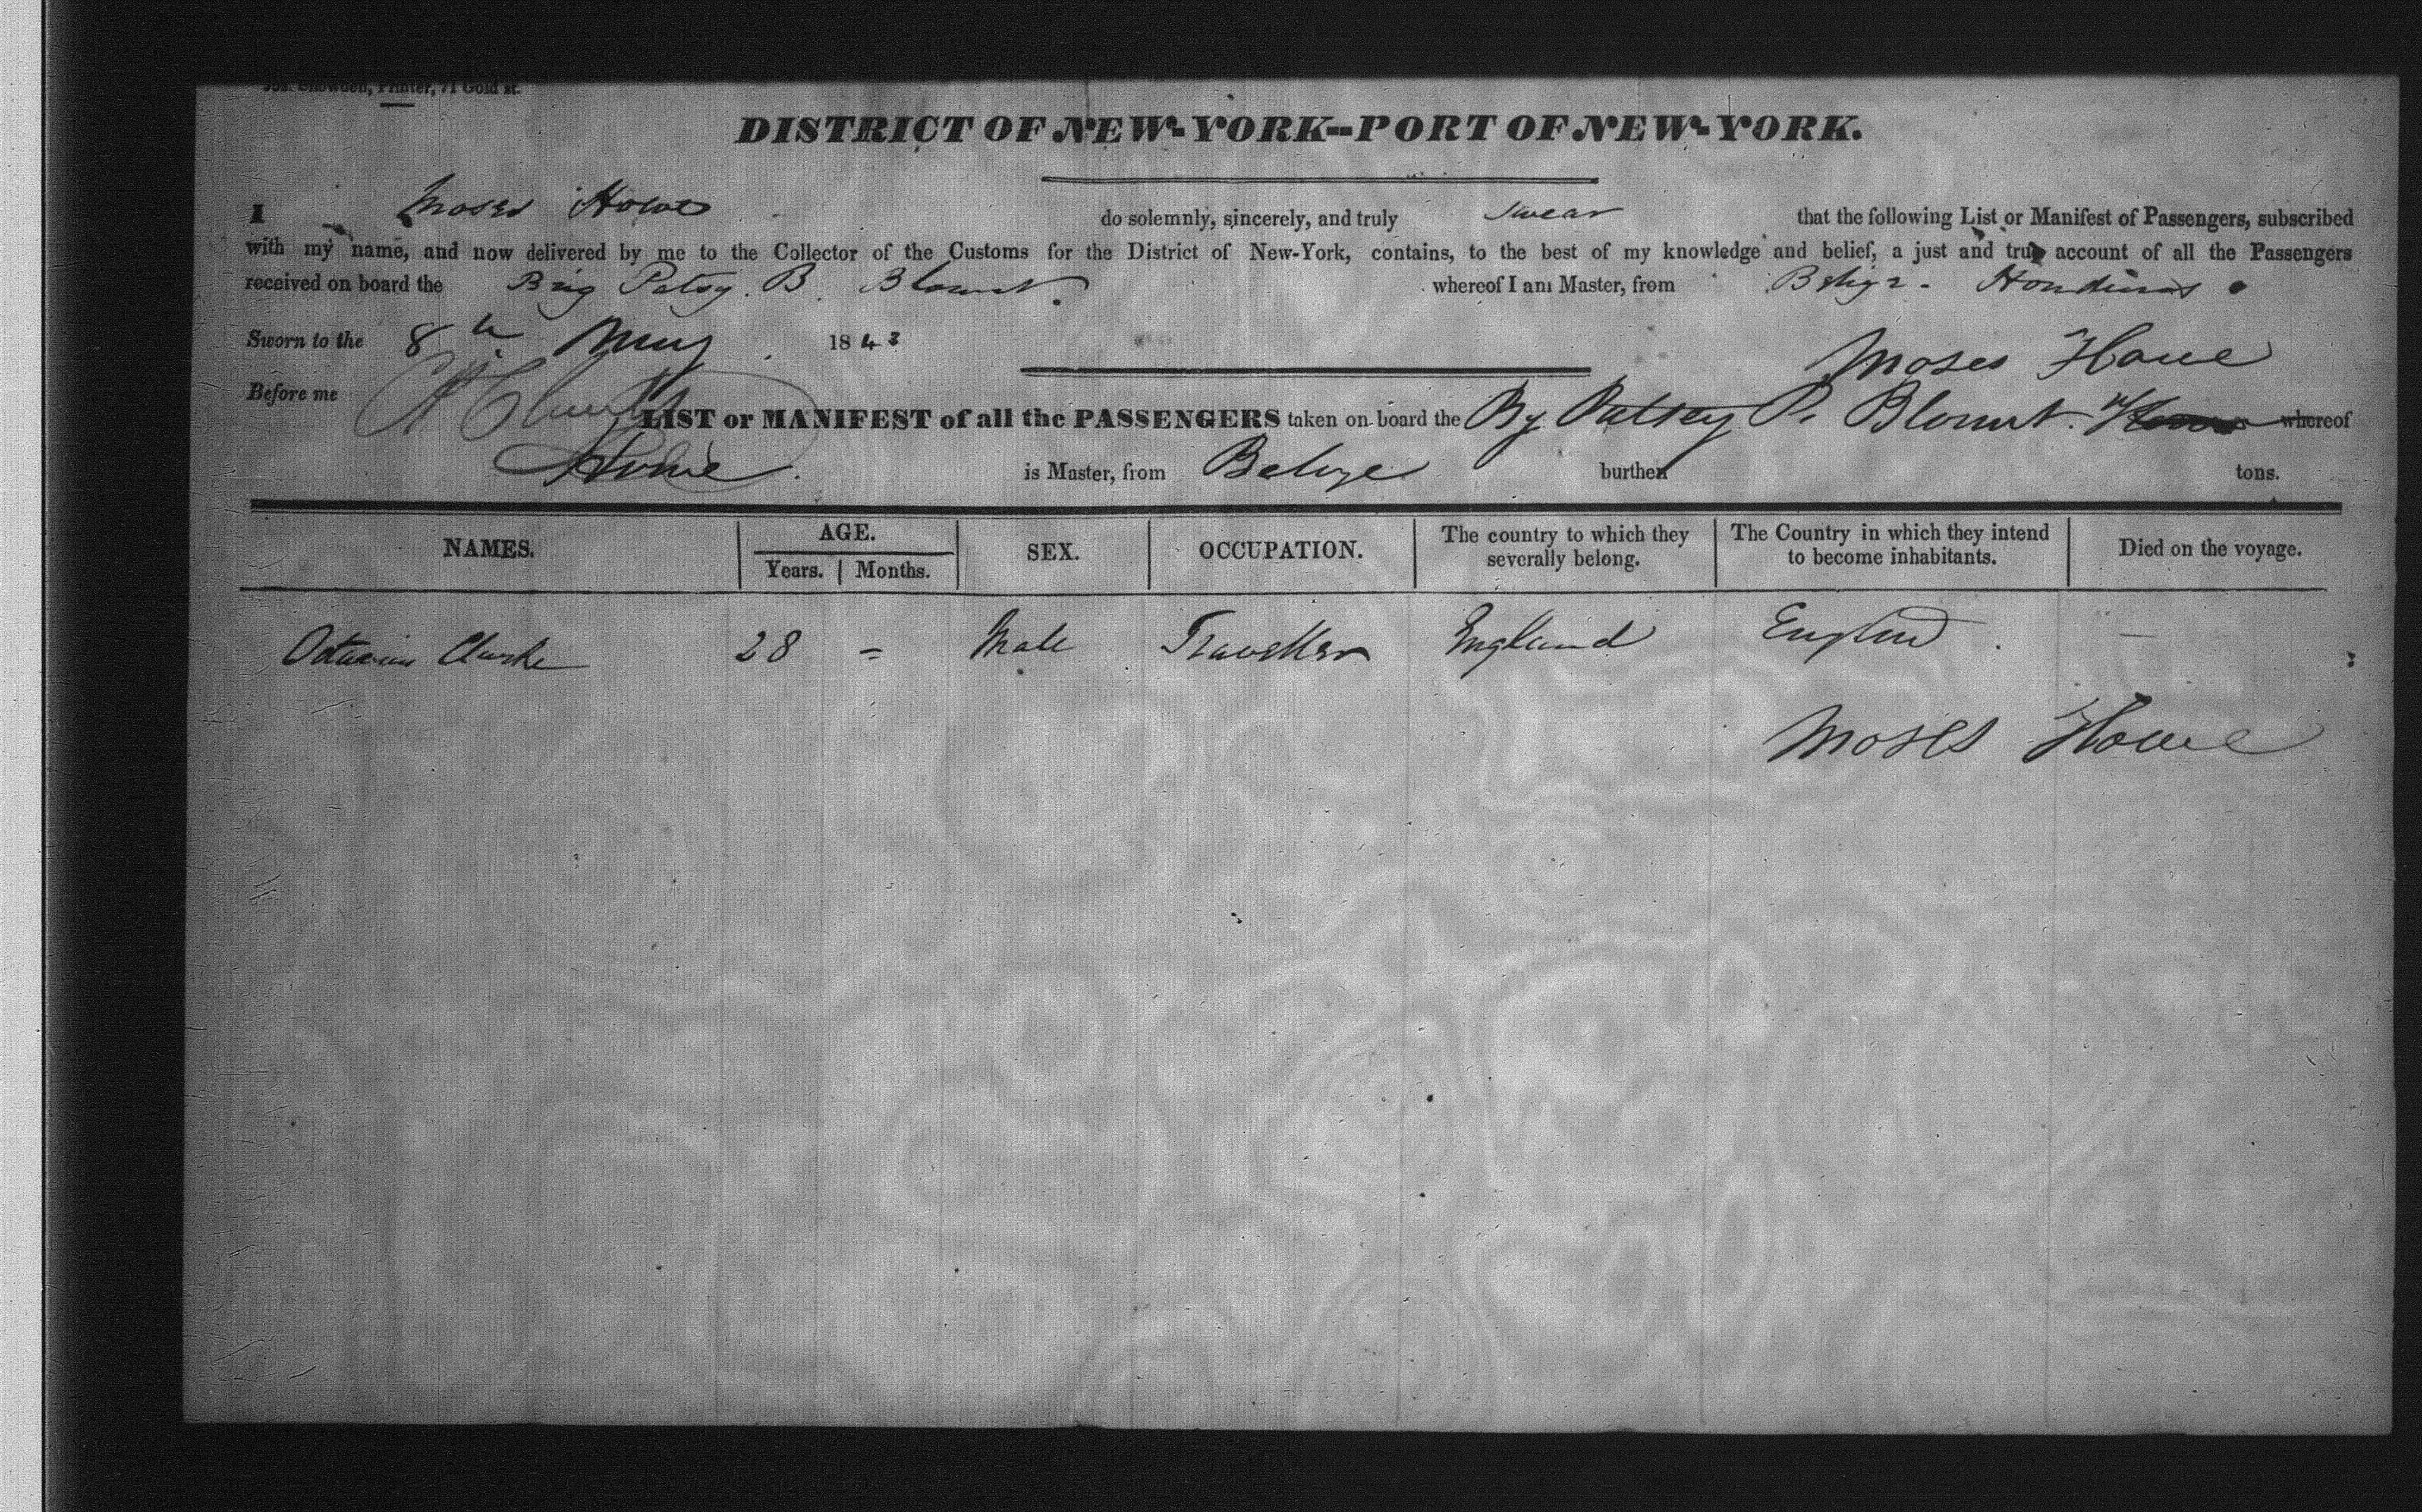 Jos. Snowden, Printer, 71 Gold st.
DISTRICT OF NEW-YORK--PORT OF NEW-YORK.
I Moses Howe do solemnly, sincerely, and truly swear that the following List or Manifest of Passengers, subscribed
with my name, and now delivered by me to the Collector of the Customs for the District of New-York, contains, to the best of my knowledge and belief, a just and true account of all the Passengers
received on board the Brig Patsy B. Blount. whereof I am Master, from Belize. Honduras
Sworn to the 8th May 1843
Moses Howe
Before me
LIST or MANIFEST of all the PASSENGERS taken on board the Bg Patsey P. Blount. whereof
Howe. is Master, from Belize burthen tons.
NAMES. AGE. Years. Months. SEX. OCCUPATION. The country to which they severally belong. The Country in which they intend to become inhabitants. Died on the voyage.
Octavius Clarke 28 = Male Traveller England England. —
Moses Howe